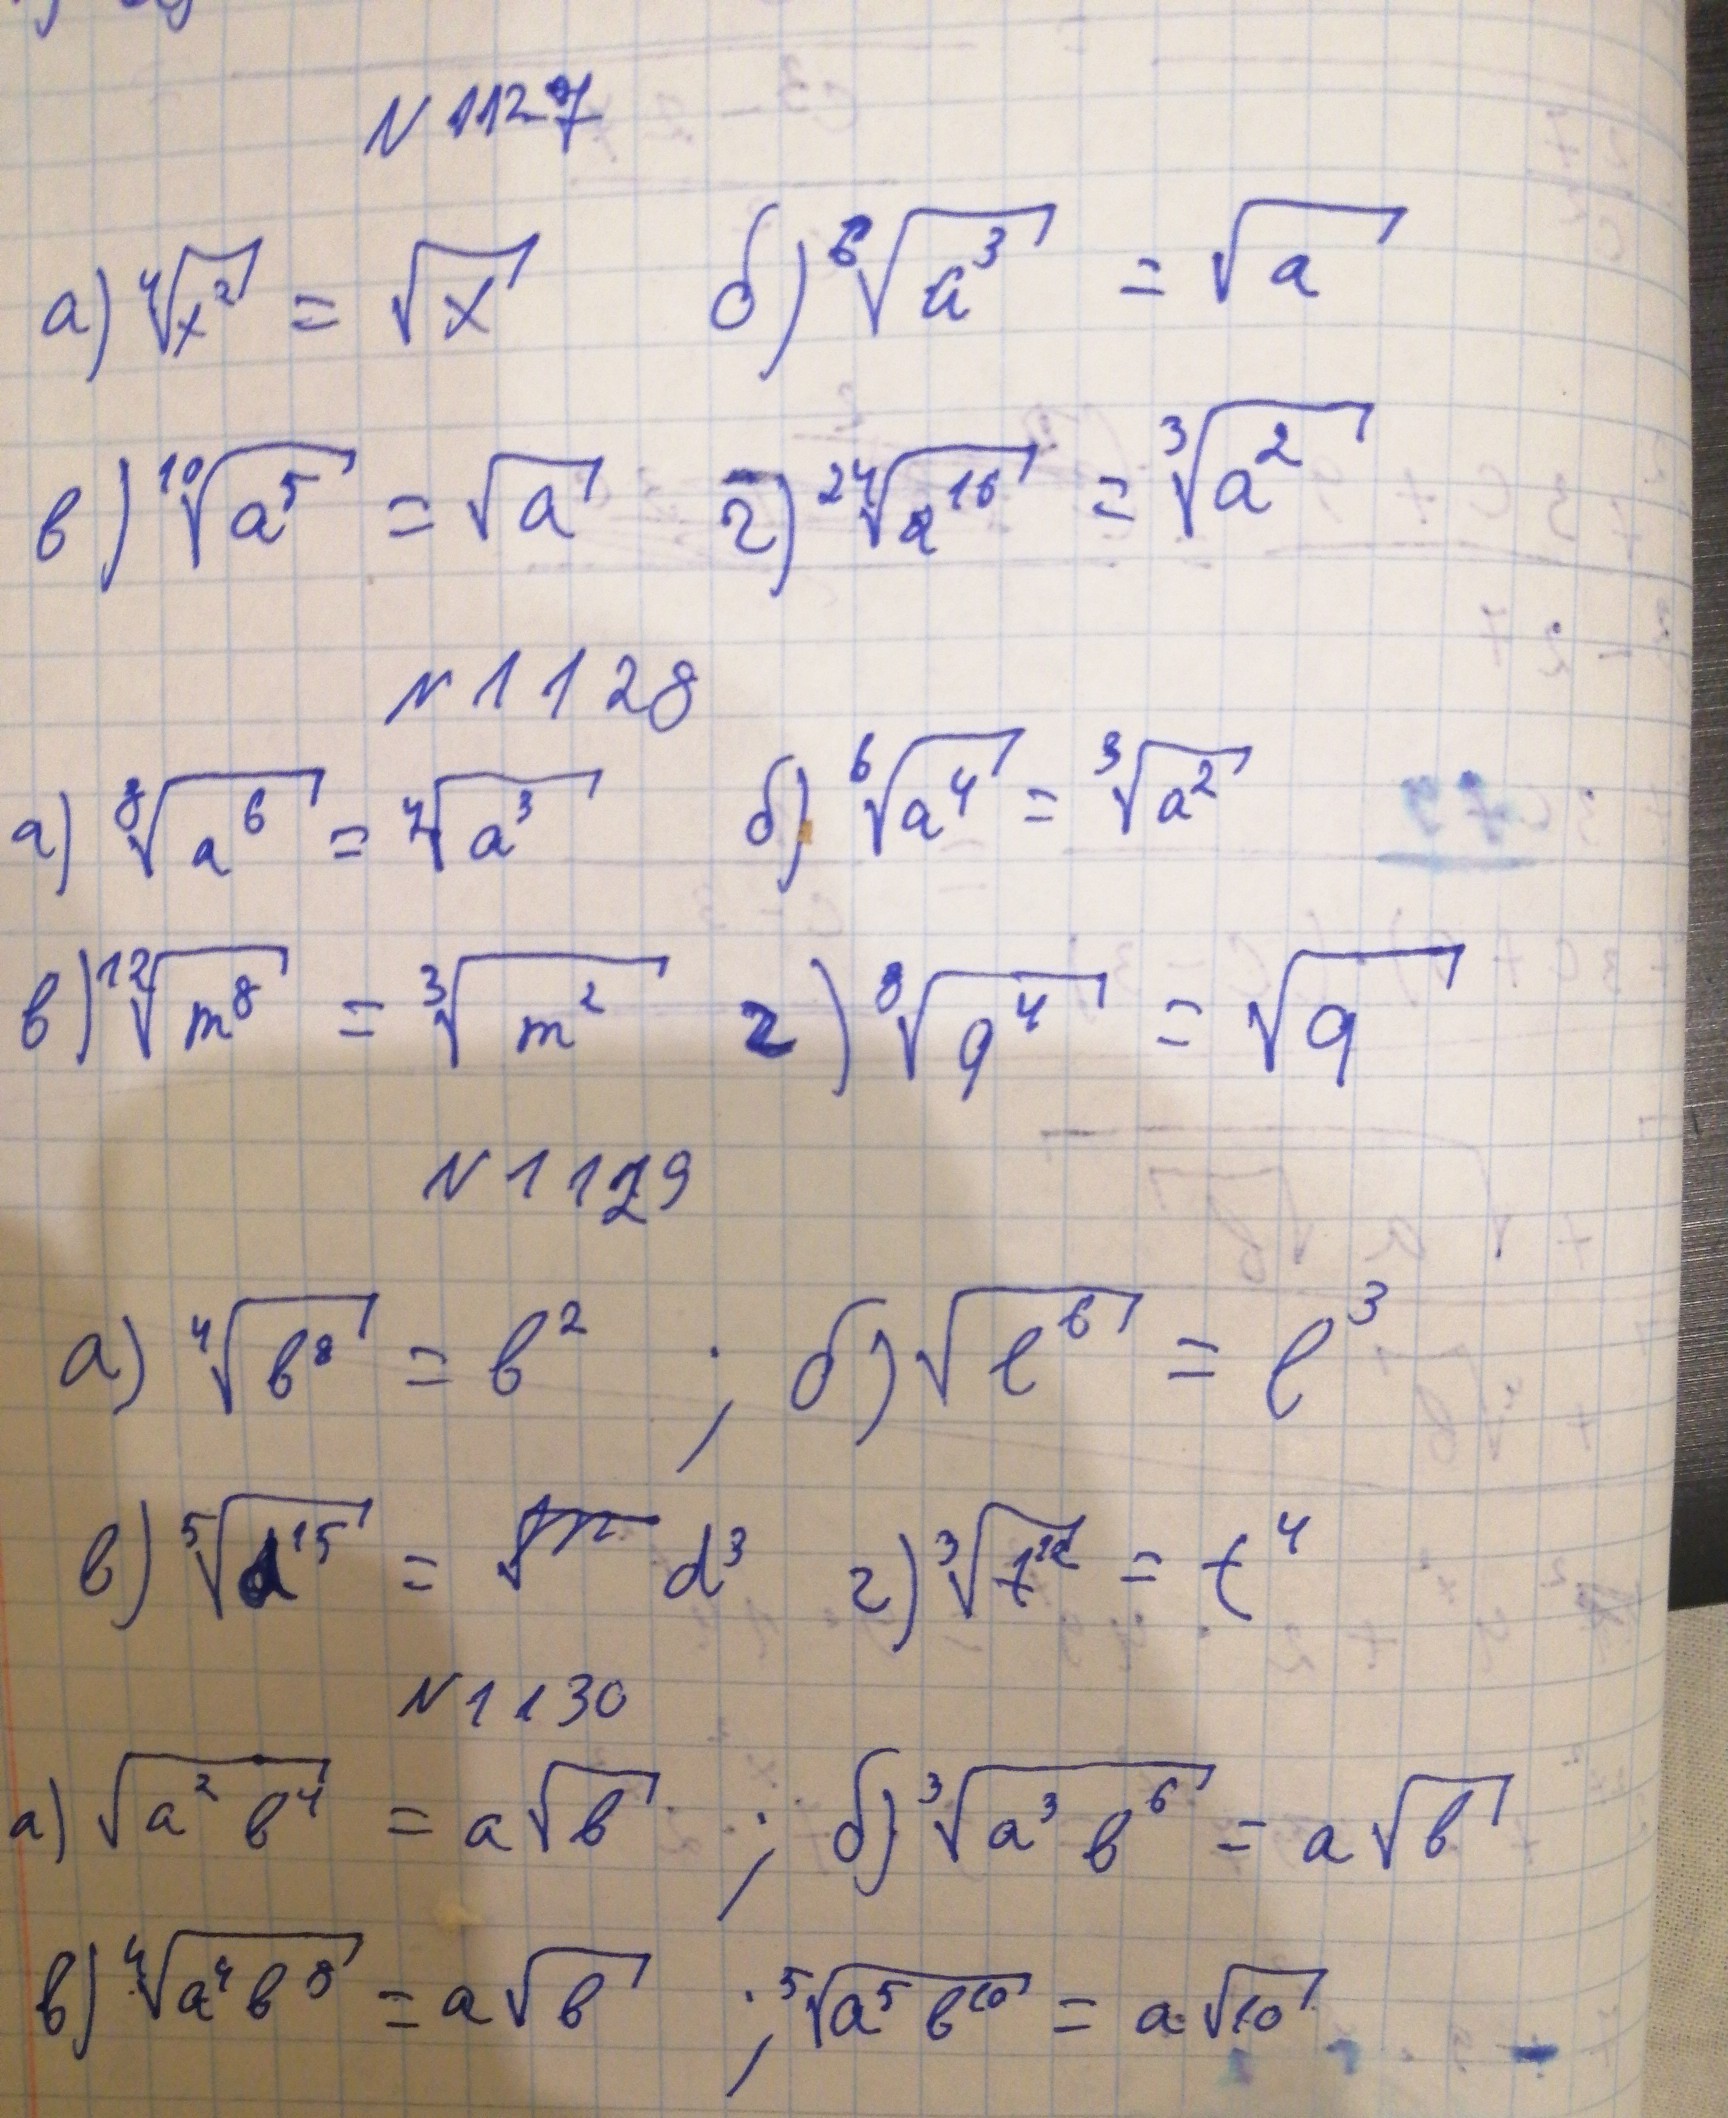 N 1127
а) ⁴√x² = √x б) ⁶√a³ = √a
в) ¹⁰√a⁵ = √a г) ²⁴√a¹⁶ = ³√a²
N 1128
а) ⁸√a⁶ = ⁴√a³ б) ⁶√a⁴ = ³√a²
в) ¹²√m⁸ = ³√m² г) ⁸√q⁴ = √q
N 1129
а) ⁴√b⁸ = b² ; б) √l⁶ = l³
в) ⁵√d¹⁵ = d³ г) ³√t¹² = t⁴
N 1130
а) √a² b⁴ = a√b ; б) ³√a³ b⁶ = a√b
в) ⁴√a⁴ b⁸ = a√b ; ⁵√a⁵ b¹⁰ = a√10